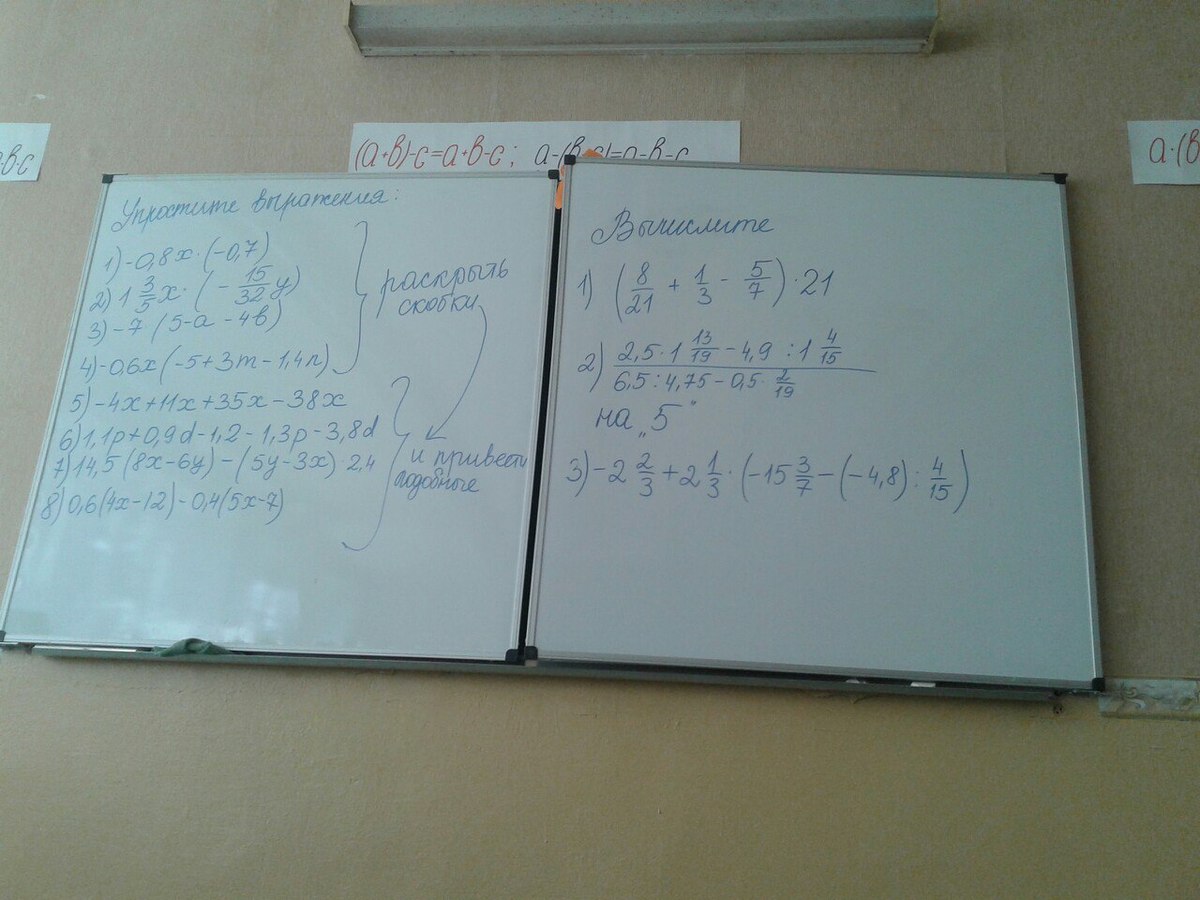 в·с
(а+в)-с=а+в-с; а-(в+с)=а-в-с
а·(в
Упростите выражения:
1) -0,8x·(-0,7)
2) 1 3/5 x·(-15/32 y)
3) -7 (5-a-4b)
4) -0,6x(-5+3m-1,4n)
раскрыть
скобки
5) -4x+11x+35x-38x
6) 1,1p+0,9d-1,2-1,3p-3,8d
7) 14,5(8x-6y)-(5y-3x)·2,4
8) 0,6(4x-12)-0,4(5x-7)
и привести
подобные
Вычислите
1) (8/21 + 1/3 - 5/7)·21
2) 2,5·1 13/19 - 4,9 : 1 4/15
6,5:4,75-0,5· 2/19
на „5"
3) -2 2/3 + 2 1/3 · (-15 3/7 - (-4,8) : 4/15)